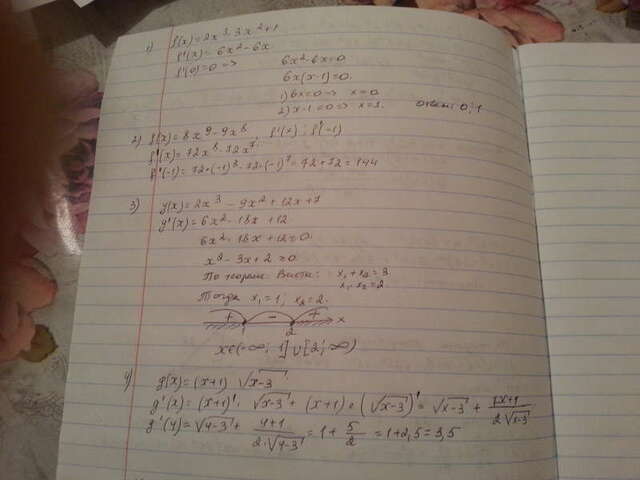 1) f(x)=2x³-3x²+1
f'(x)=6x²-6x
f'(0)=0 => 6x²-6x=0
6x(x-1)=0
1) 6x=0 => x=0
2) x-1=0 => x=1. Ответ: 0; 1
2) f(x)=8x⁹-9x⁸, f'(x); f'(-1)
f'(x)=72x⁸-72x⁷
f'(-1)=72·(-1)⁸-72·(-1)⁷=72+72=144
3) g(x)=2x³-9x²+12x+7
g'(x)=6x²-18x+12
6x²-18x+12=0
x²-3x+2=0
По теореме Виета: x₁+x₂=3
x₁·x₂=2
Тогда x₁=1; x₂=2.
+ - + x
1 2
x∈(-∞; 1]∪[2; ∞)
4) g(x)=(x+1)√x-3
g'(x)=(x+1)'·√x-3+(x+1)·(√x-3)'=√x-3+x+1/2√x-3
g'(4)=√4-3+4+1/2·√4-3=1+5/2=1+2,5=3,5